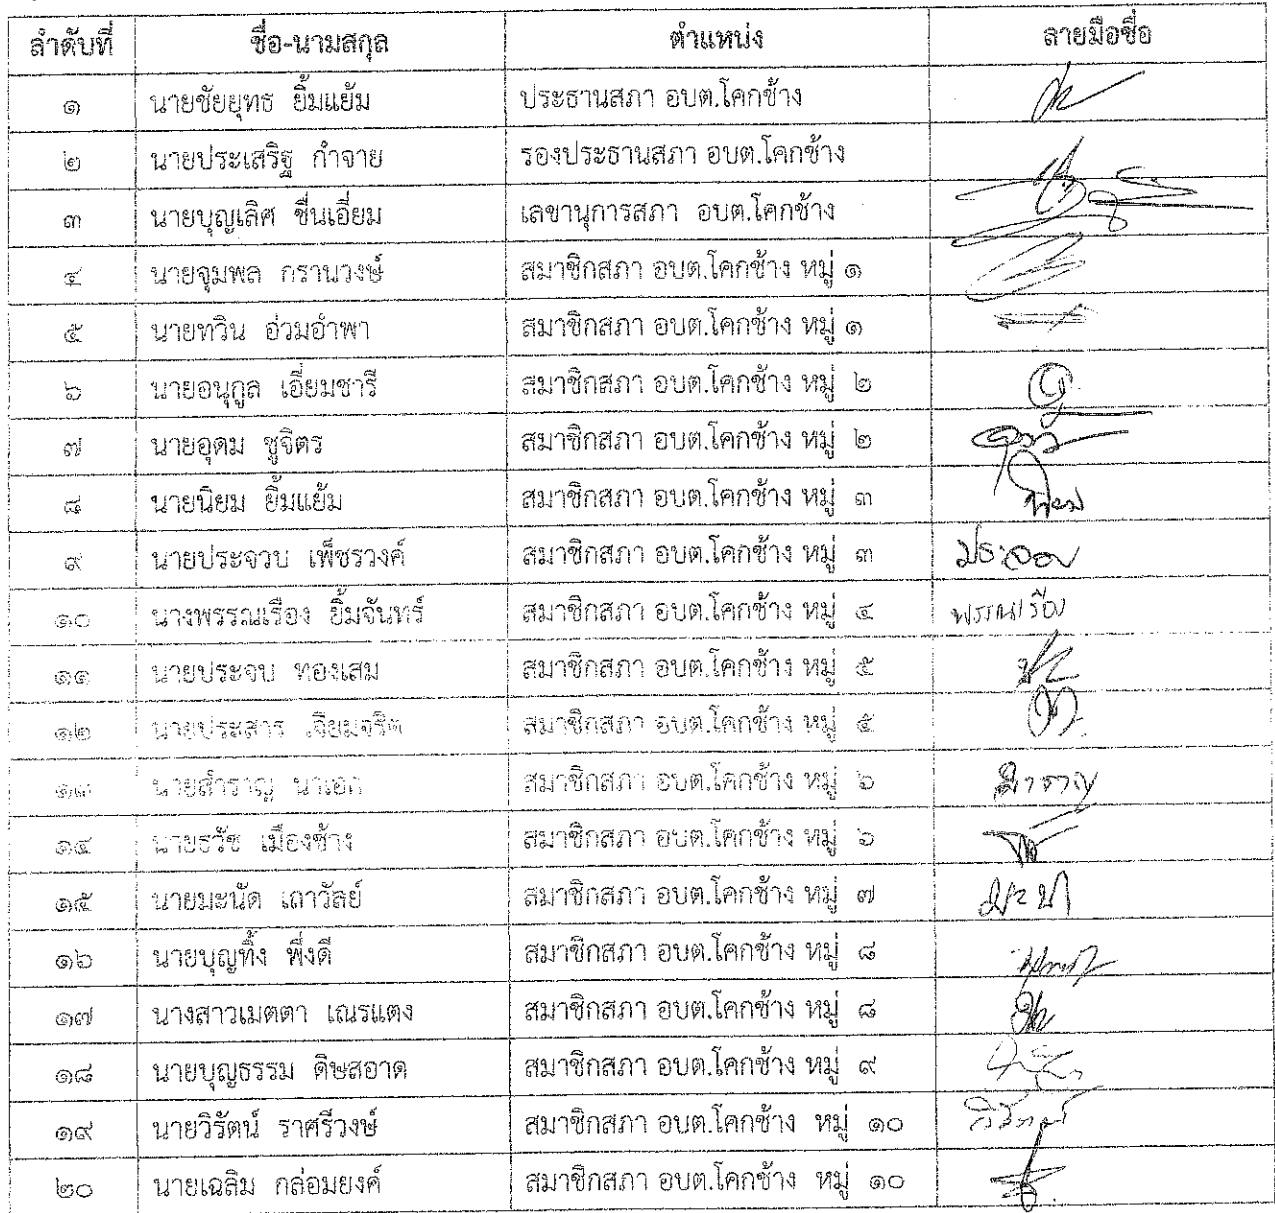 ลำดับที่ ชื่อ-นามสกุล ตำแหน่ง ลายมือชื่อ
๑ นายชัยยุทธ ยิ้มแย้ม ประธานสภา อบต.โคกช้าง
๒ นายประเสริฐ กำจาย รองประธานสภา อบต.โคกช้าง
๓ นายบุญเลิศ ชื่นเอี่ยม เลขานุการสภา อบต.โคกช้าง
๔ นายจุมพล กรานวงษ์ สมาชิกสภา อบต.โคกช้าง หมู่ ๑
๕ นายทวิน อ่วมอำพา สมาชิกสภา อบต.โคกช้าง หมู่ ๑
๖ นายอนุกูล เอี่ยมชารี สมาชิกสภา อบต.โคกช้าง หมู่ ๒
๗ นายอุดม ชูจิตร สมาชิกสภา อบต.โคกช้าง หมู่ ๒
๘ นายนิยม ยิ้มแย้ม สมาชิกสภา อบต.โคกช้าง หมู่ ๓ นิยม
๙ นายประจวบ เพ็ชรวงค์ สมาชิกสภา อบต.โคกช้าง หมู่ ๓
๑๐ นางพรรณเรือง ยิ้มจันทร์ สมาชิกสภา อบต.โคกช้าง หมู่ ๔ พรรณเรือง
๑๑ นายประจบ ทองเสม สมาชิกสภา อบต.โคกช้าง หมู่ ๕
๑๒ นายประสาร เจียมจริต สมาชิกสภา อบต.โคกช้าง หมู่ ๕
๑๓ นายสำราญ นาเอก สมาชิกสภา อบต.โคกช้าง หมู่ ๖ สำราญ
๑๔ นายธวัช เมืองช้าง สมาชิกสภา อบต.โคกช้าง หมู่ ๖
๑๕ นายมะนัด เถาวัลย์ สมาชิกสภา อบต.โคกช้าง หมู่ ๗
๑๖ นายบุญทิ้ง พึ่งดี สมาชิกสภา อบต.โคกช้าง หมู่ ๘
๑๗ นางสาวเมตตา เณรแตง สมาชิกสภา อบต.โคกช้าง หมู่ ๘
๑๘ นายบุญธรรม ดิษสอาด สมาชิกสภา อบต.โคกช้าง หมู่ ๙
๑๙ นายวิรัตน์ ราศรีวงษ์ สมาชิกสภา อบต.โคกช้าง หมู่ ๑๐
๒๐ นายเฉลิม กล่อมยงค์ สมาชิกสภา อบต.โคกช้าง หมู่ ๑๐